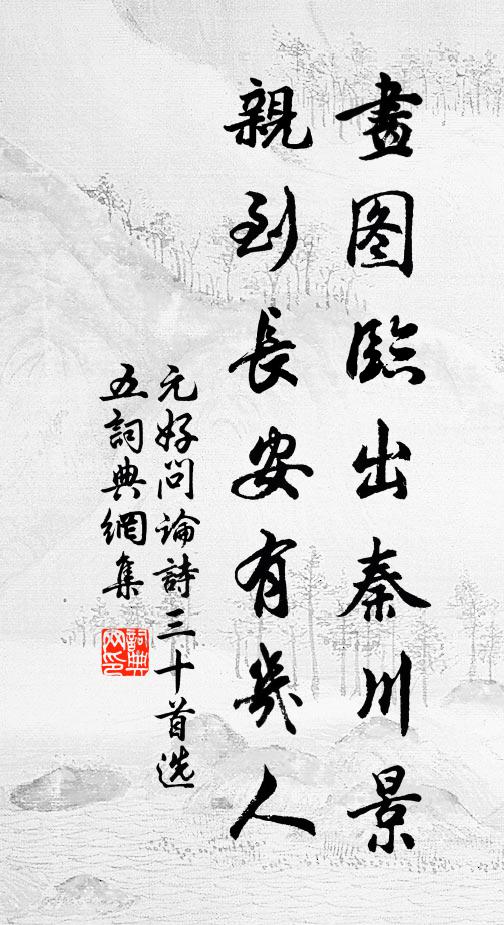 畫图臨出秦川景
親到長安有幾人
元好问論詩三十首选
五詞典網集
詞典网印